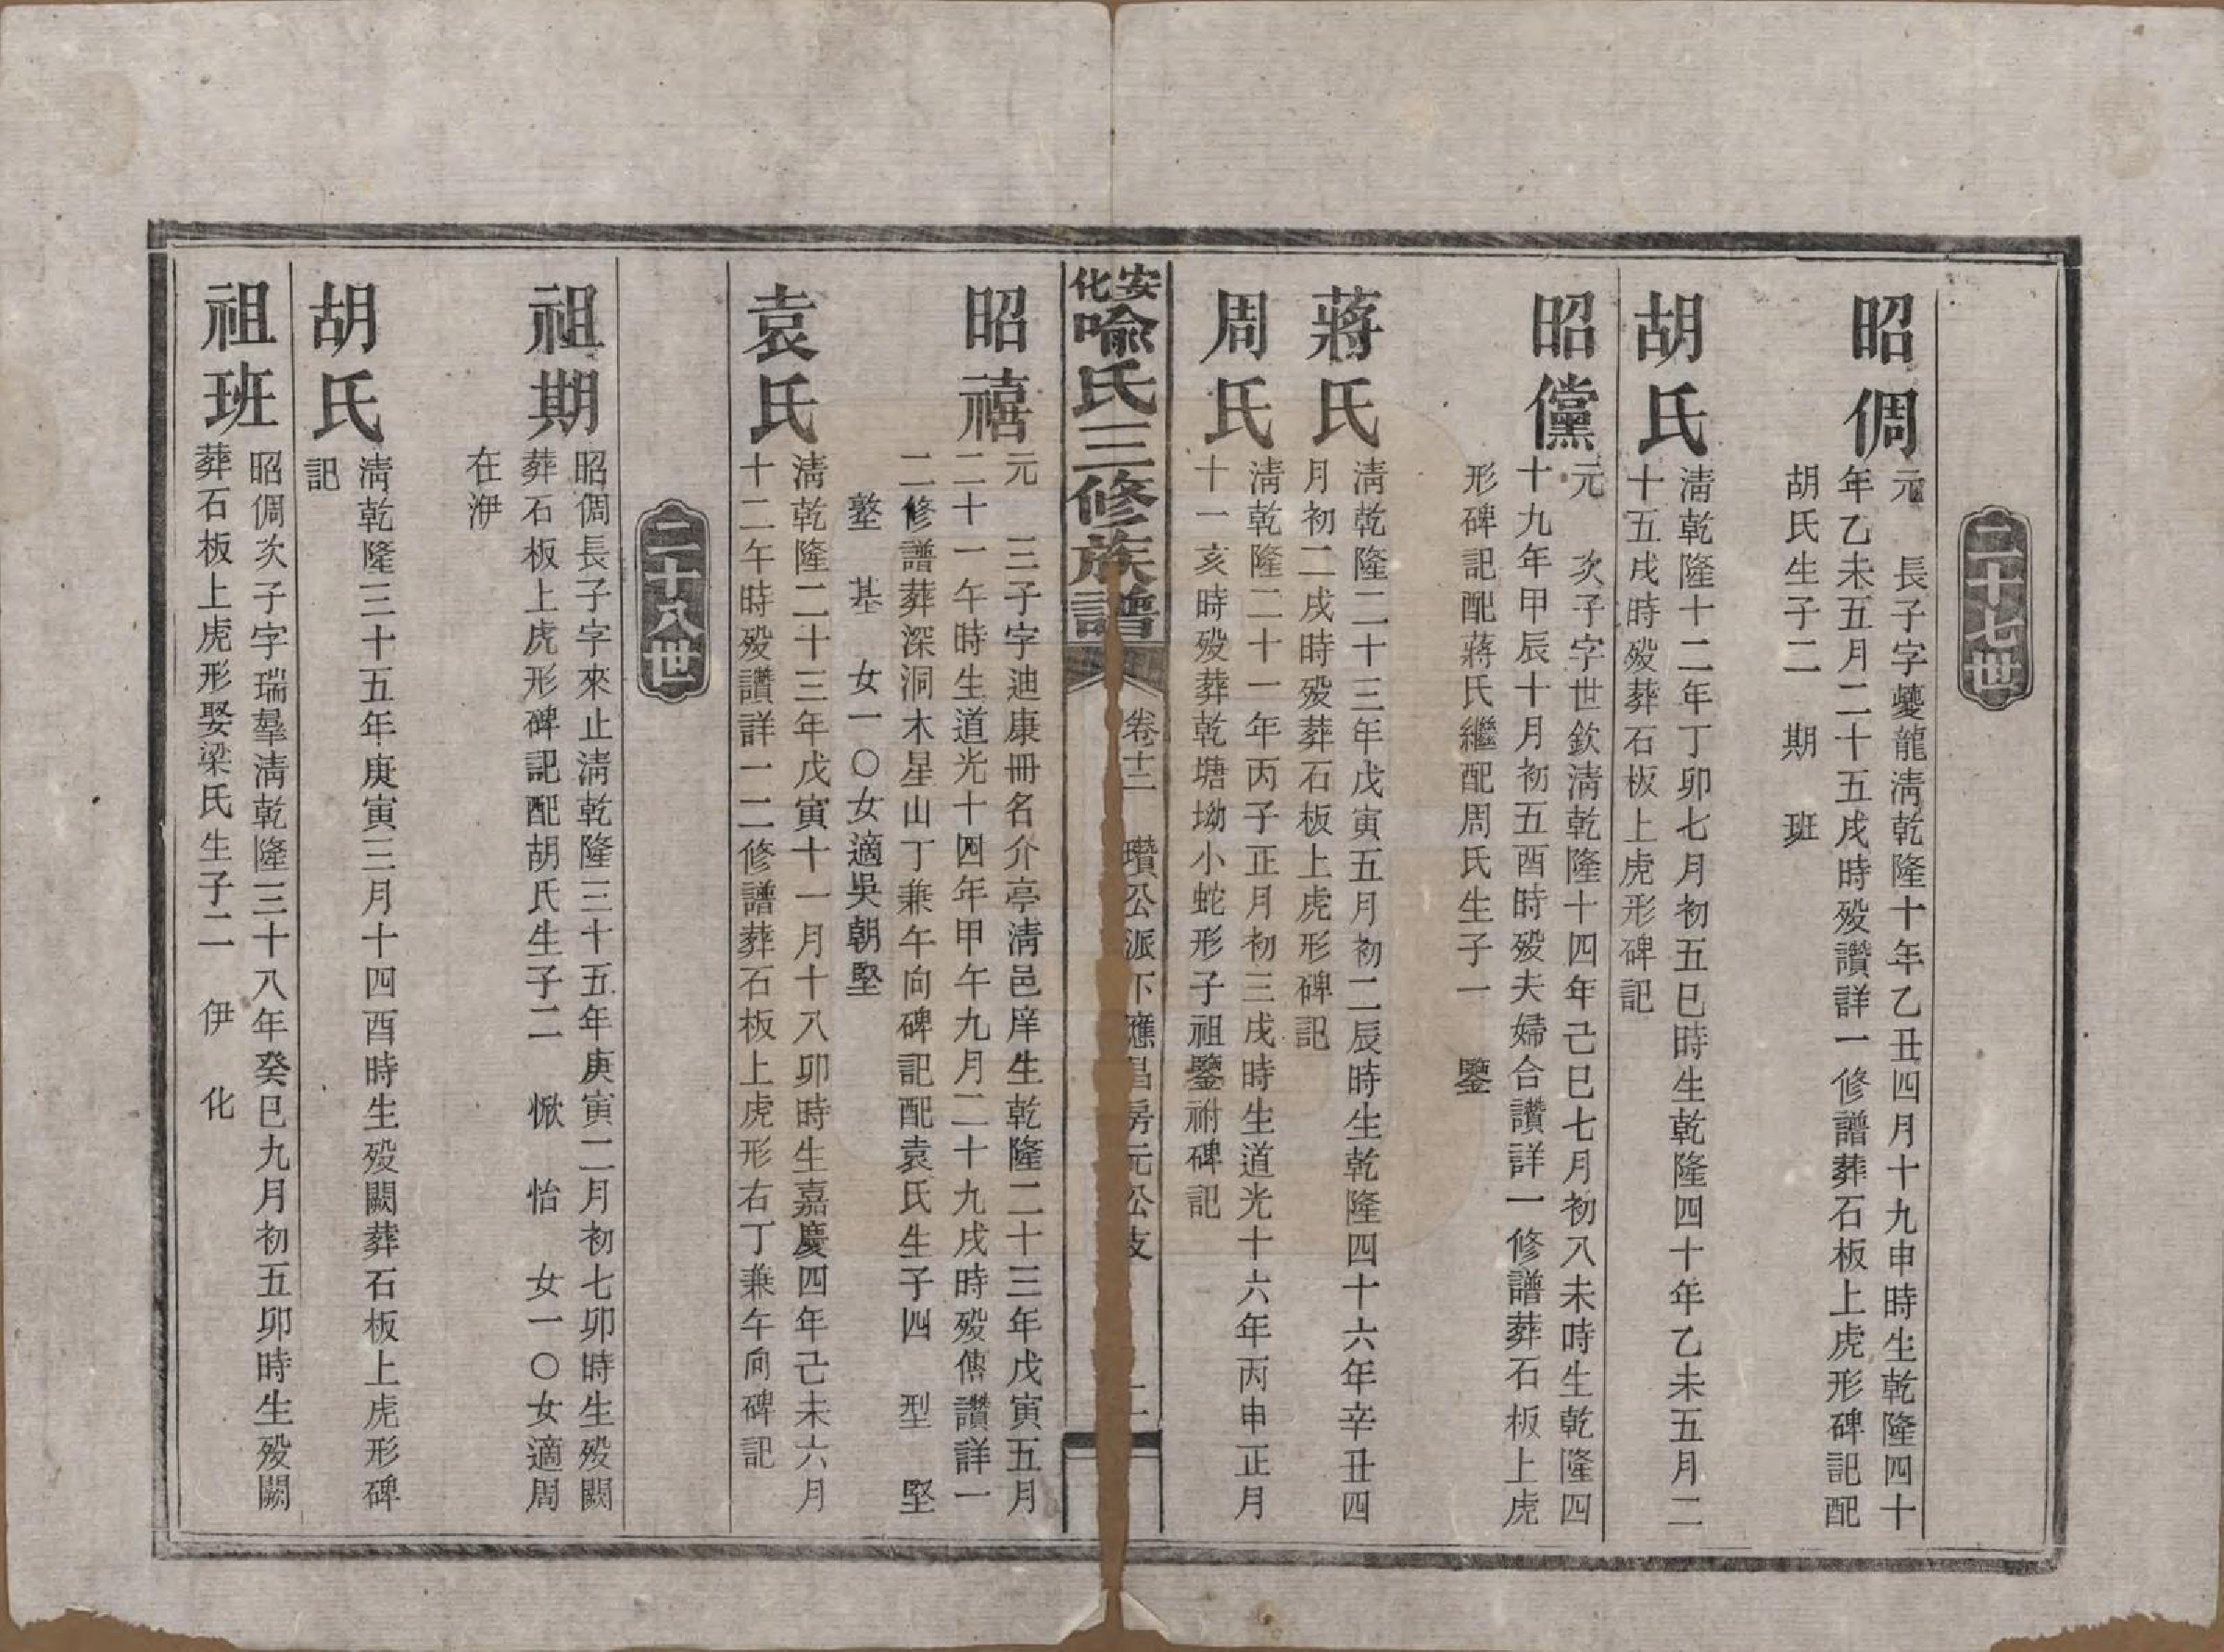 二十七世
昭倜
元　長子字夔龍淸乾隆十年乙丑四月十九申時生乾隆四十
年乙未五月二十五戌時殁讚詳一修譜葬石板上虎形碑記配
胡氏生子二　期　班
胡氏
淸乾隆十二年丁卯七月初五巳時生乾隆四十年乙未五月二
十五戌時殁葬石板上虎形碑記
昭儻
元　次子字世欽淸乾隆十四年己巳七月初八未時生乾隆四
十九年甲辰十月初五酉時殁夫婦合讚詳一修譜葬石板上虎
形碑記配蔣氏繼配周氏生子一　鑒
蔣氏
淸乾隆二十三年戊寅五月初二辰時生乾隆四十六年辛丑四
月初二戌時殁葬石板上虎形碑記
周氏
淸乾隆二十一年丙子正月初三戌時生道光十六年丙申正月
十一亥時殁葬乾塘坳小蛇形子祖鑒祔碑記
安化喩氏三修族譜　卷十二　瓚公派下應昌房元公支　二
昭禧
元　三子字迪康冊名介亭淸邑庠生乾隆二十三年戊寅五月
二十一午時生道光十四年甲午九月二十九戌時殁傳讚詳一
二修譜葬深洞木星山丁兼午向碑記配袁氏生子四　型　堅
　基　女一〇女適吳朝堅
袁氏
淸乾隆二十三年戊寅十一月十八卯時生嘉慶四年己未六月
十二午時殁讚詳一二修譜葬石板上虎形右丁兼午向碑記
二十八世
祖期
昭倜長子字來止淸乾隆三十五年庚寅二月初七卯時生殁闕
葬石板上虎形碑記配胡氏生子二　惞　怡　女一〇女適周
在洢
胡氏
淸乾隆三十五年庚寅三月十四酉時生殁闕葬石板上虎形碑
記
祖班
昭倜次子字瑞羣淸乾隆三十八年癸巳九月初五卯時生殁闕
葬石板上虎形娶梁氏生子二　伊　化